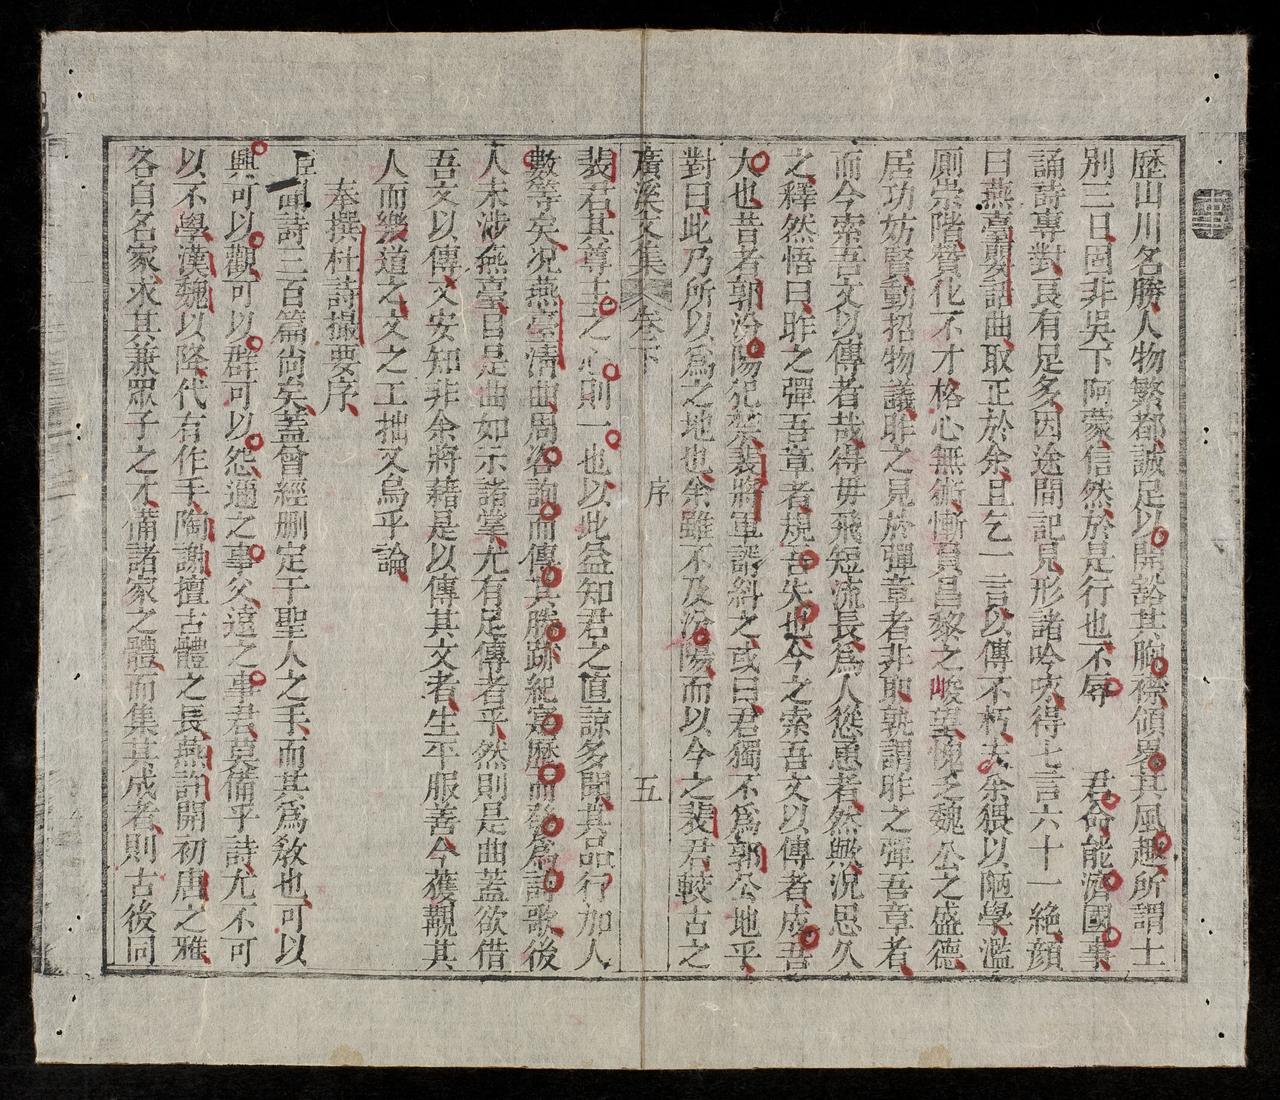 歷山川名勝人物繁都誠足以開豁其胸襟領畧其風趣所謂士
別三日固非吳下阿蒙信然於是行也不辱 君命能濟國事
誦詩專對良有足多因途間記見形諸吟咏得七言六十一絶顔
曰燕臺夏話曲取正於余且乞一言以傳不朽夫余猥以陋學濫
廁崇階贊化不才格心無術慚負昌黎之峻望愧乏魏公之盛德
居功妨賢動招物議昨之見於彈章者非耶孰謂昨之彈吾章者
而今索吾文以傳者哉得毋飛短流長爲人從恿者然與況思久
之釋然悟曰昨之彈吾章者規吾失也今之索吾文以傳者成吾
大也昔者郭汾陽犯禁裴將軍諝糾之或曰君獨不爲郭公地乎
對曰此乃所以爲之地也余雖不及汾陽而以今之裴君較古之
廣溪文集 卷之下 序 五
裴君其尊主之心則一也以此益知君之直諒多聞其品行加人
數等矣况燕臺清曲周咨詢而傳其勝跡紀寔歷而發爲詩歌後
人未涉燕臺目是曲如示諸掌尤有足傳者乎然則是曲蓋欲借
吾文以傳又安知非余將藉是以傳其文者生平服善今獲覩其
人而幾道之文之工拙又烏乎論
奉撰杜詩撮要序
臣聞詩三百篇尚矣蓋曾經删定于聖人之手而其爲敎也可以
興可以觀可以群可以怨邇之事父遠之事君莫備乎詩尤不可
以不學漢魏以降代有作手陶謝擅古體之長燕許開初唐之雅
各自名家求其兼眾子之才備諸家之體而集其成者則古後同